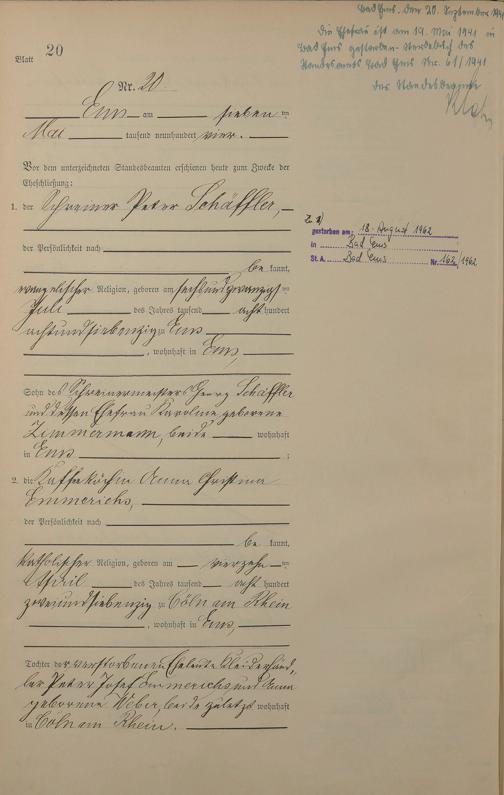 Bad Ems, den 20. September 1941
Die Ehefrau ist am 19. Mai 1941 in
Bad Ems gestorben. Sterbebuch des
Standesamts Bad Ems Nr. 61/1941
Der Standesbeamte
Blatt 20
Nr. 20.
Ems am sieben ten
Mai tausend neunhundert vier.
Vor dem unterzeichneten Standesbeamten erschienen heute zum Zwecke der
Eheschließung:
1. der Schreiner Peter Schäffler,
der Persönlichkeit nach
be kannt,
evangelischer Religion, geboren am sechsundzwanzigsten
Juli des Jahres tausend acht hundert
achtundsiebenzig zu Ems
, wohnhaft in Ems,
Sohn des Schreinermeisters Georg Schäffler
und dessen Ehefrau Karoline geborene
Zimmermann, beide wohnhaft
in Ems ;
2. die Kaffeeköchin Anna Christina
Emmerichs,
der Persönlichkeit nach
be kannt,
katholischer Religion, geboren am vierzehn ten
April des Jahres tausend acht hundert
zweiundsiebenzig zu Cöln am Rhein
, wohnhaft in Ems,
Tochter der verstorbenen Eheleute Kleiderhänd-
ler Peter Josef Emmerichs und Anna
geborene Weber, beide zuletzt wohnhaft
in Cöln am Rhein.
gestorben am: 18. August 1962
in Bad Ems
St. A. Bad Ems Nr. 162/1962